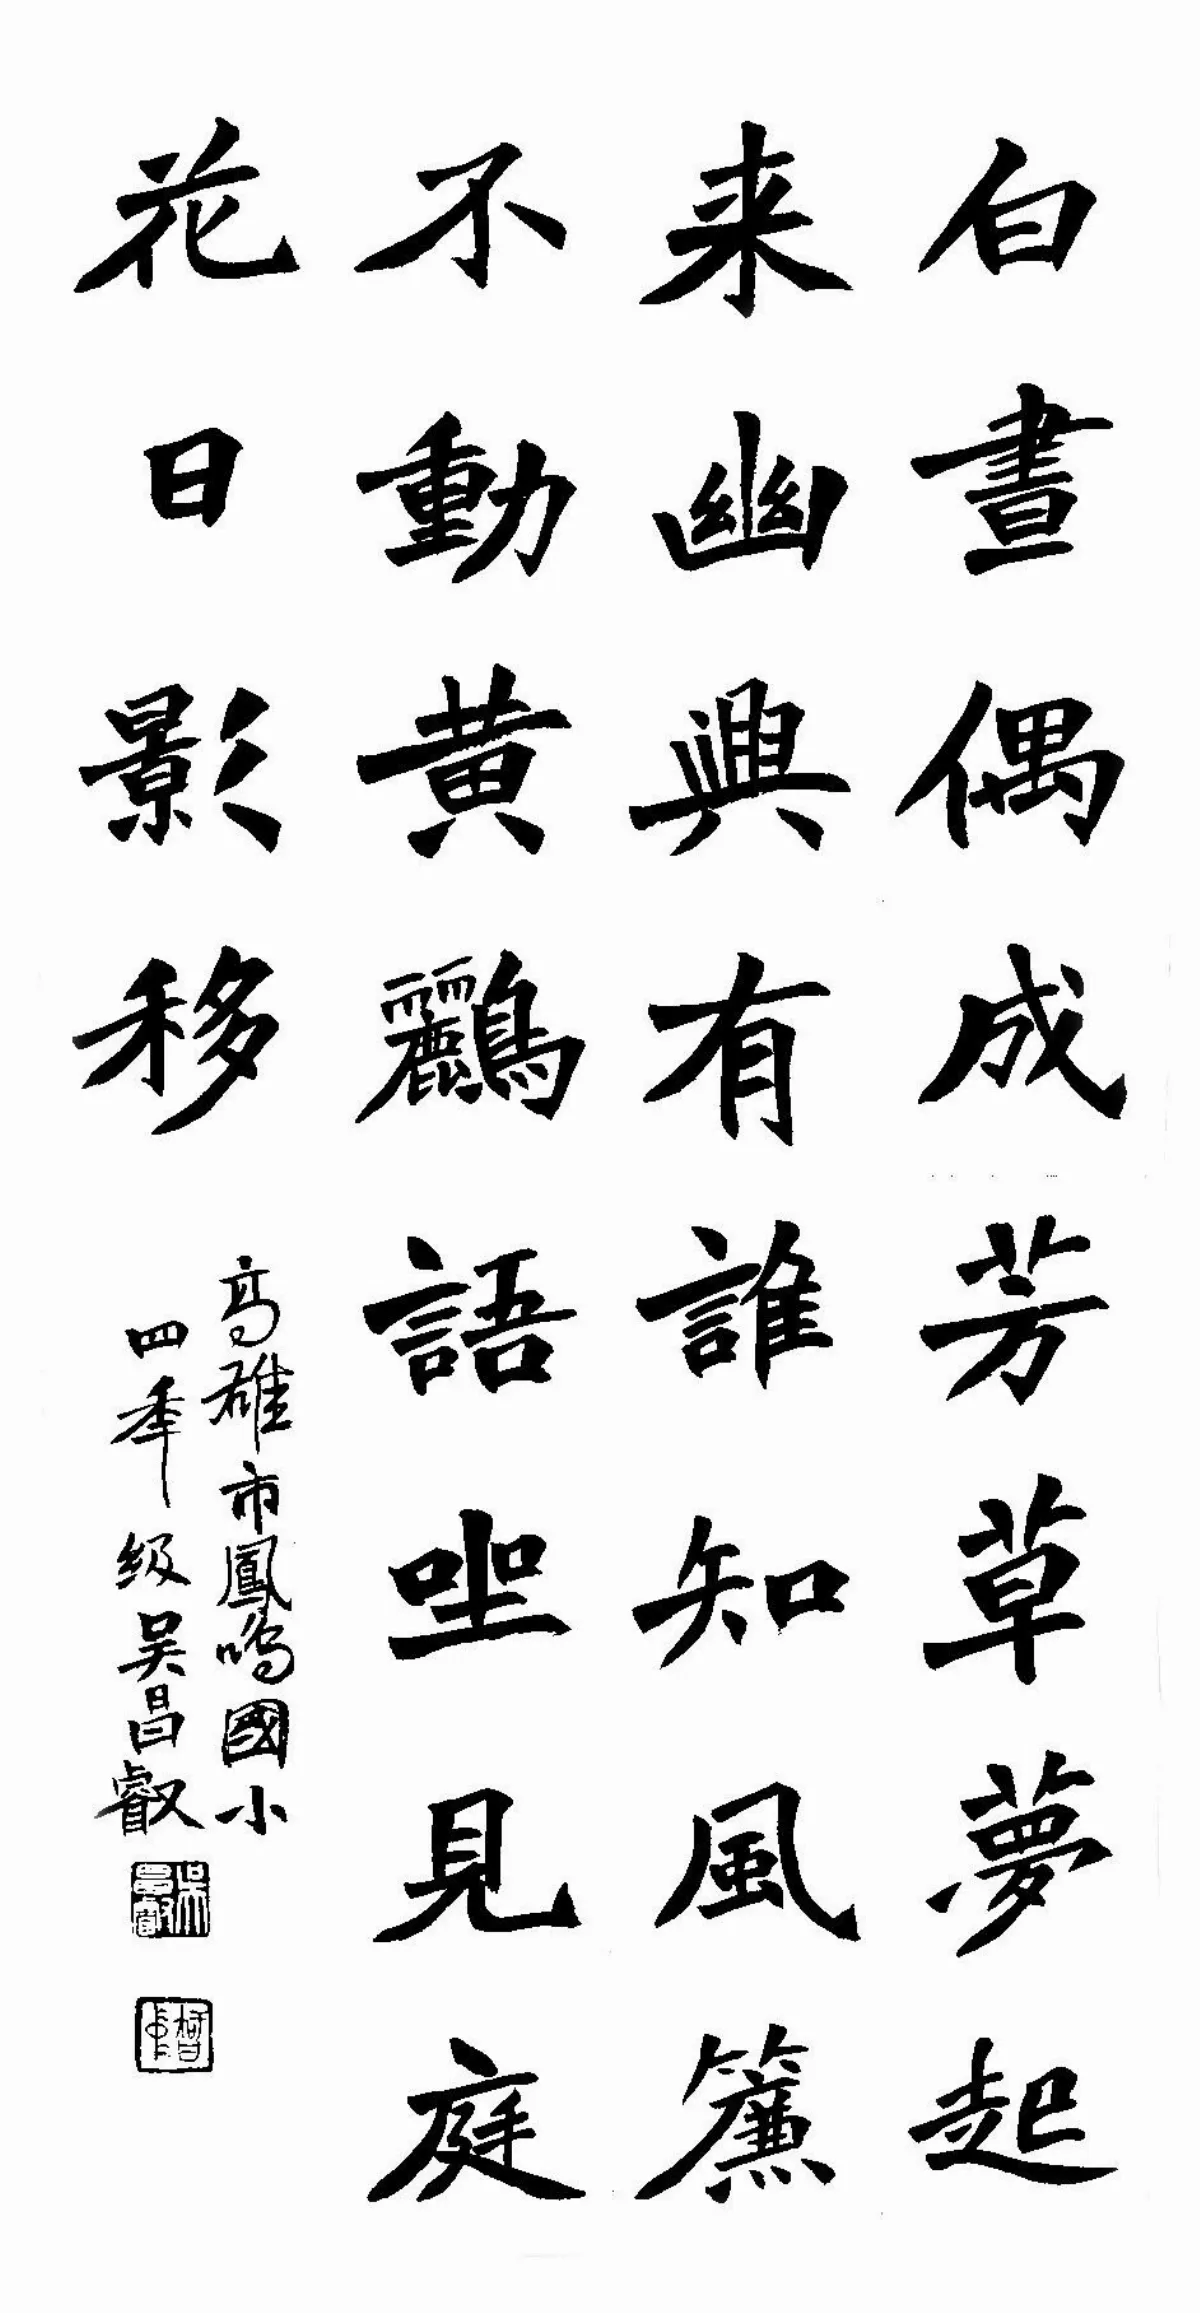 白晝偶成芳草夢起
来幽興有誰知風簾
不動黄鸝語坐見庭
花日影移
高雄市鳳鳴國小
四年级吴昌叡
吳昌叡